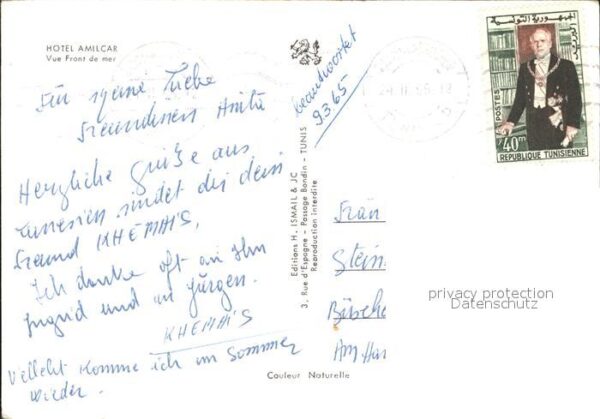 HOTEL AMILCAR
Vue Front de mer
Für meine Liebe
Freundinen Anita
Herzliche Grüße aus
Tunesien sindet dis dein
Freund KHEMAIS,
Ich danke oft an Ihn
Ingrid und an Jürgen.
KHEMAIS
Velleicht komme ich im Sommer
wieder.
beantwortet
9.3.65
Editions H. ISMAIL & JC
3, Rue d'Espagne - Passage Bondin - TUNIS
Reproduction Interdite
Couleur Naturelle
الجمهورية التونسية
البريد
POSTES
40m
REPUBLIQUE TUNISIENNE
Stein
Büsche
Am
privacy protection
Datenschutz